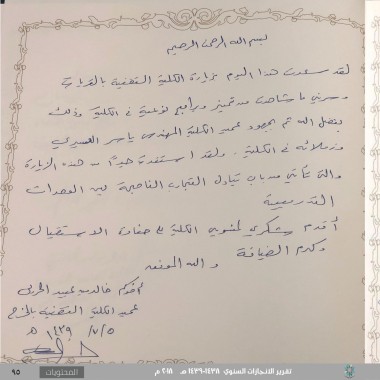 بسم الله الرحمن الرحيم
لقد سعدت هذا اليوم بزيارة الكلية التقنية بالقريات
وسرني ما شاهدت من تميز وبرامج نوعية في الكلية وذلك
بفضل الله ثم بجهود عميد الكلية المهندس ياسر
وزملائه في الكلية . ولقد استفدت كثيراً من هذه الزيارة
والتي تأتي من باب تبادل التجارب الناجحة بين الوحدات
التدريبية
أقدم شكري لمنسوبي الكلية على حفاوة الاستقبال
وكرم الضيافة
و الله الموفق
أخوكم خالد بن عبيد الحربي
عميد الكلية التقنية بالخرج
١٤٣٩/٧/٥ هـ
تقرير الانجازات السنوي ١٤٣٨-١٤٣٩ هـ ٢٠١٨ م
المحتويات
٩٥